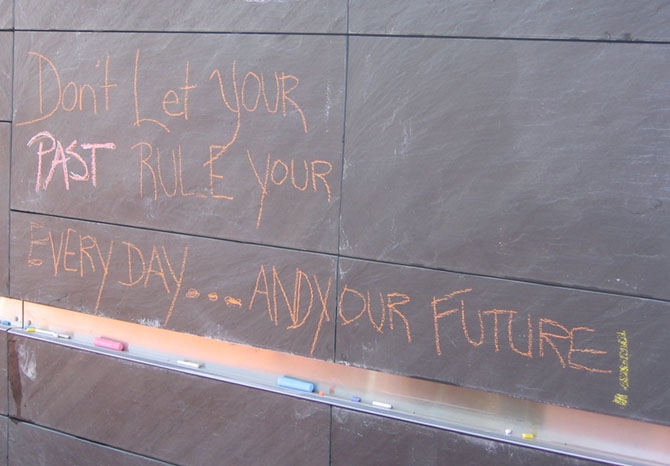 Don't Let YOUR
PAST RULE YOUR
EVERYDAY... AND YOUR FUTURE